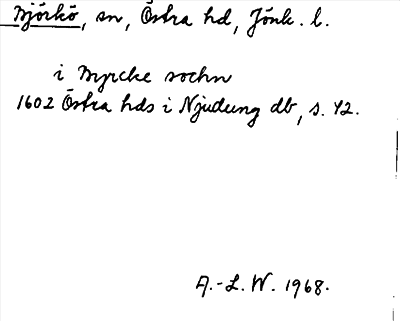 Björkö, sn, Östra hd, Jönk. l.
i Byrcke sochn
1602 Östra hds i Njudung db, s. 42.
A.-L. W. 1968.